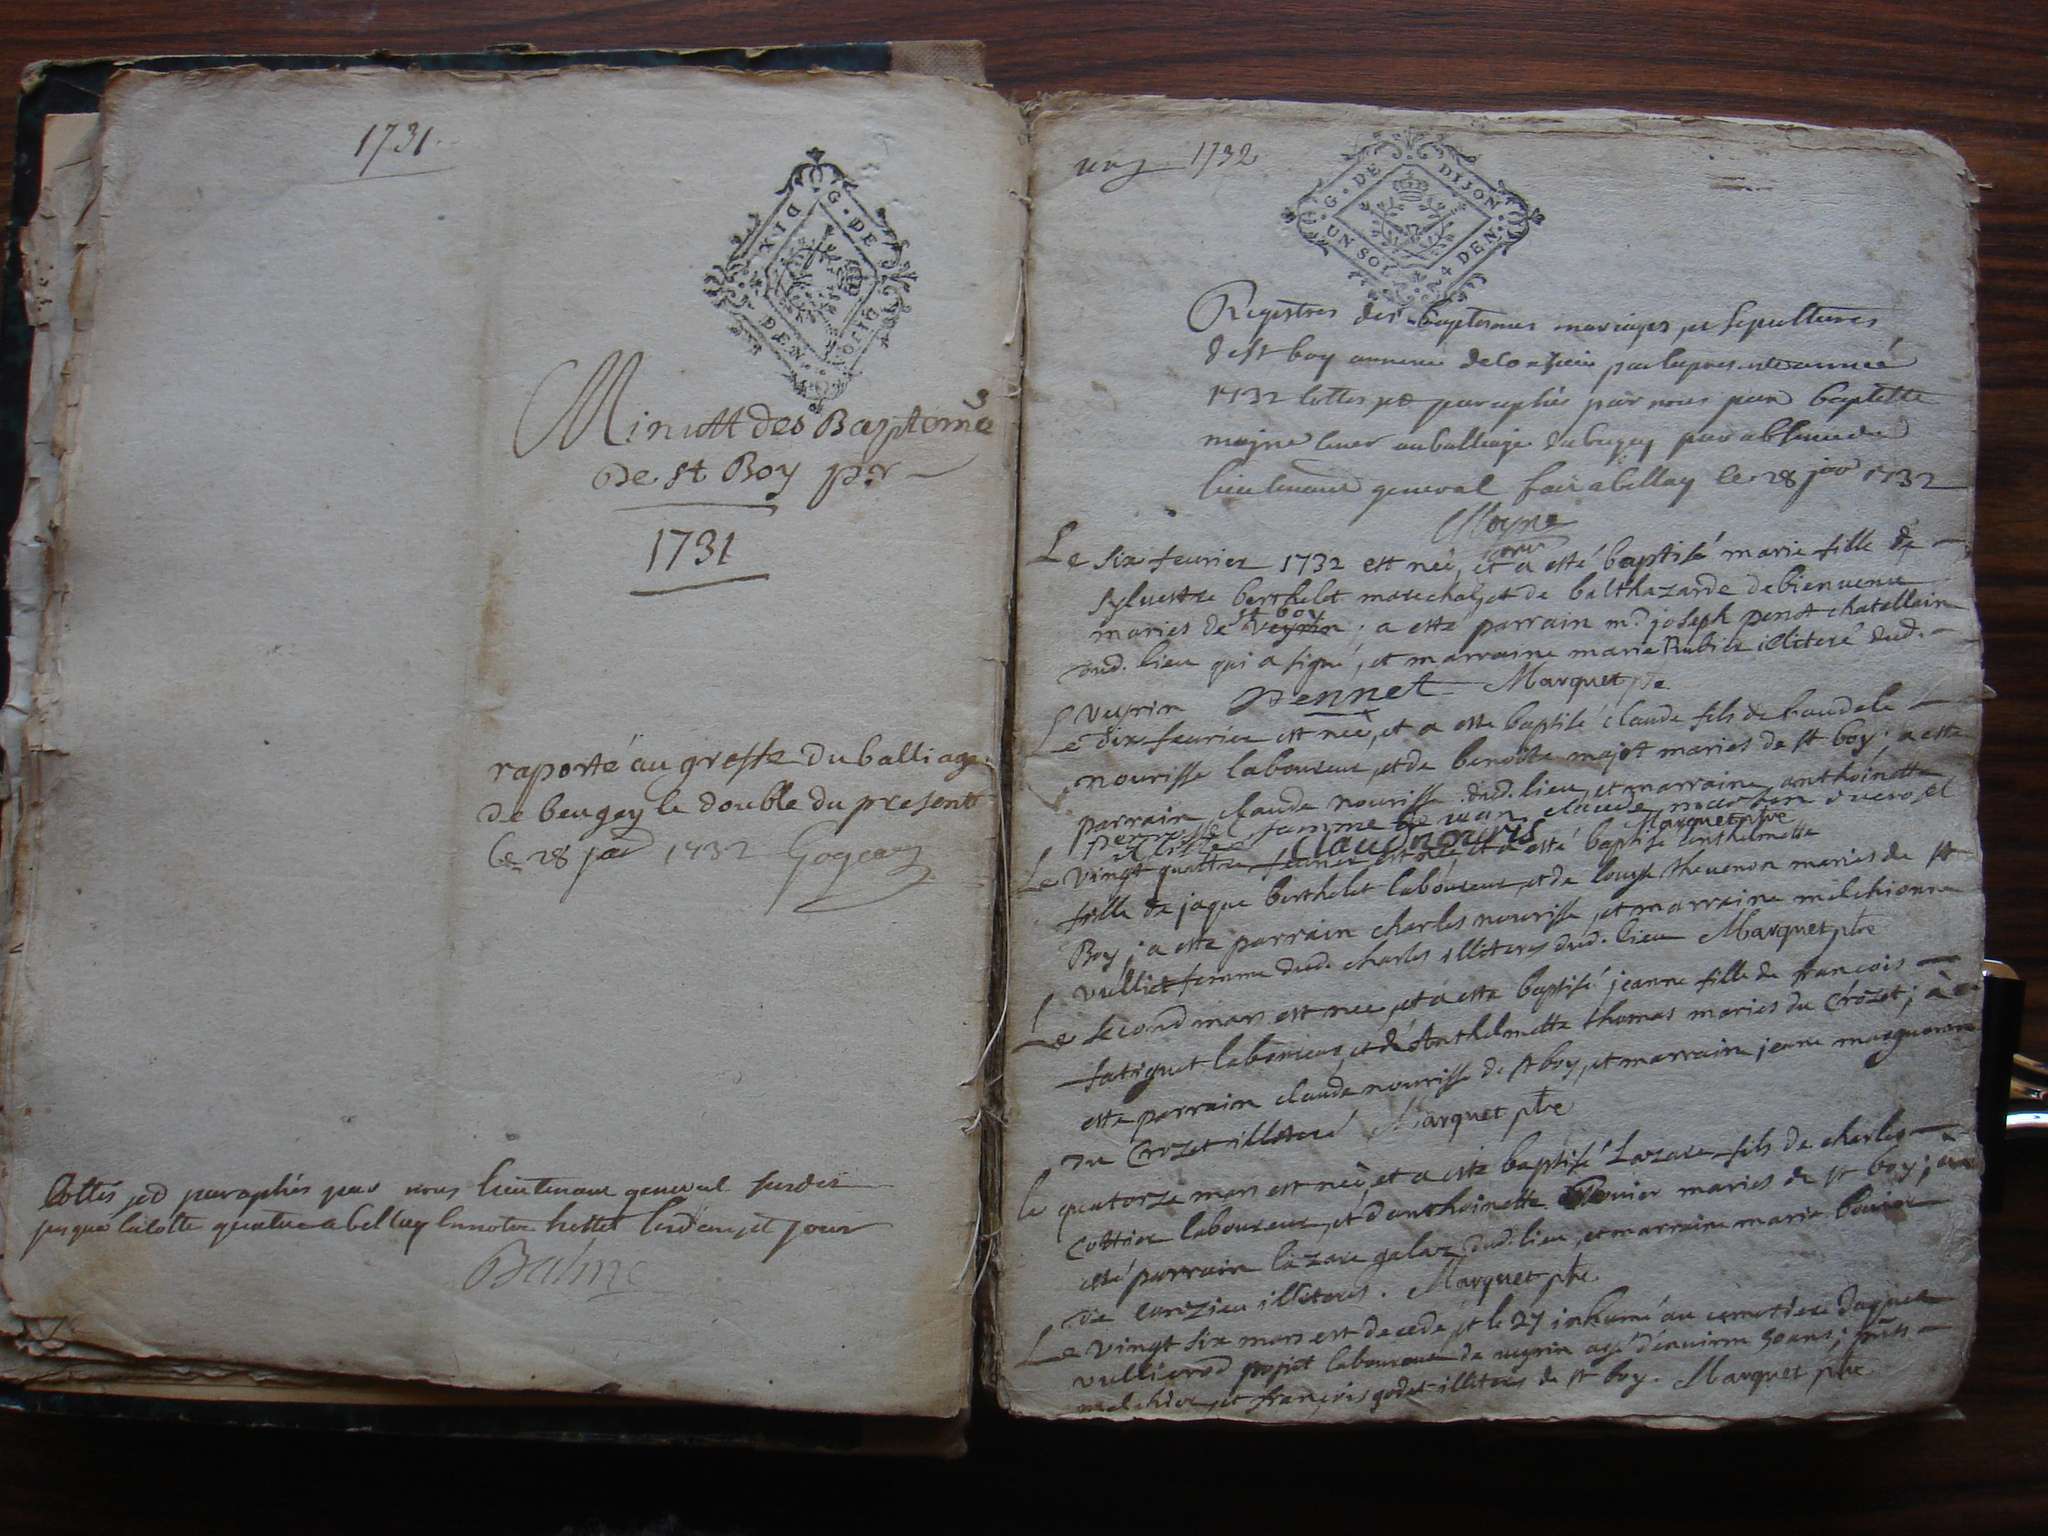 1731
G. DE DIJON DIX DEN
Minutt des Baptemes
De st Boy pr
1731
raporté au greffe du balliage
de beugey le double du present
le 28 jer 1732
Cottés et paraphés par nous lieutenant general susdit
jusque la cotte quatre a belley en notre hostel lesdits an et jour
Balme
1732
G. DE DIJON UN SOL 4 DEN.
Registres des baptesmes mariages et sepultures
de st boy annexe de pour la presente année
1732 cottes et paraphés par nous jean baptiste
au balliage du bugey par absence du
lieutenant general fait a bellay le 28 jer 1732
Moyne
Le six feurier 1732 est neé, et a esté baptisé marie fille de
syluestre berthelet marechal, et de balthazarde debienuenu
st boy
maries de veyrin ; a esté parrain mr joseph penet chatellain
dud. lieu qui a signé, et marraine marie Rubier illiteré dud.
veyrin Pennet Marquet ptre
Le dix feurier est neé, et a esté baptisé claude fils de baudele
nourisse laboureur, et de benoite majot maries de st boy ; a esté
parrain claude nourisse dud. lieu, et marraine anthoinette
femme de claude
claud nouris Marquet ptre
Le vingt quattre feurier est neé et a esté baptisé anthelmette
fille de jaque berthelet laboureur, et de louyse theuenon maries de st
Boy ; a esté parrain charles nourisse, et marraine melchionne
vulliet femme dud. charles illiteres dud. lieu Marquet ptre
Le second mars est neé, et a esté baptisé jeanne fille de francois
fatiguet laboureur, et d'Anthelmette thomas maries du Crozet ; à
esté parrain claude nourisse de st boy, et marraine jeane
du Crozet illiteré Marquet ptre
le quatorze mars est neé, et a esté baptisé Lazare fils de charles
Cottier laboureur, et d'anthoinette maries de st boy ; a
esté parrain lazare galaz dud. lieu, et marraine marie bouier
de illiteres. Marquet ptre
Le vingt six mars est decedé, et le 27 inhumé au cemetiere
laboureur de veyrin agé d'enuiron 50 ans ;
melchior, et françois godet illiterés de st boy. Marquet ptre